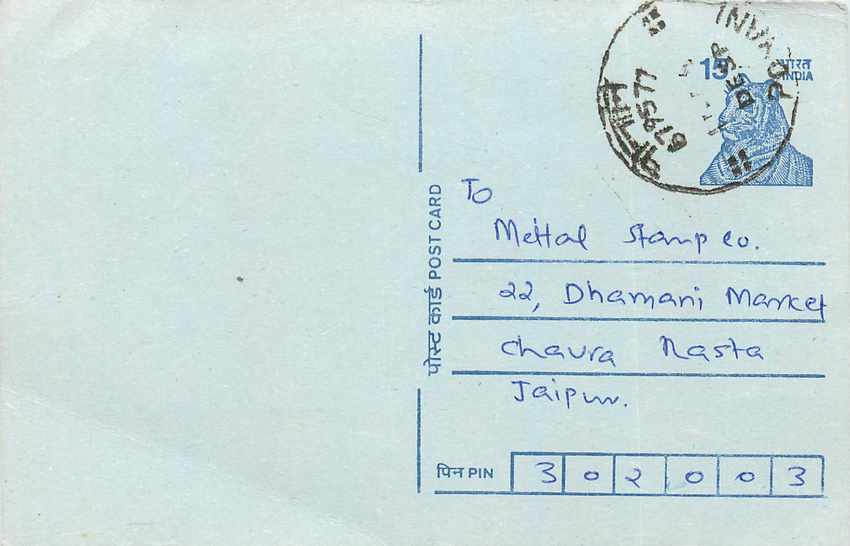 15 भारत
INDIA
679577
पोस्ट कार्ड POST CARD
To
Mettal Stamp co.
22, Dhamani Market
Chaura Rasta
Jaipur.
पिन PIN 302003